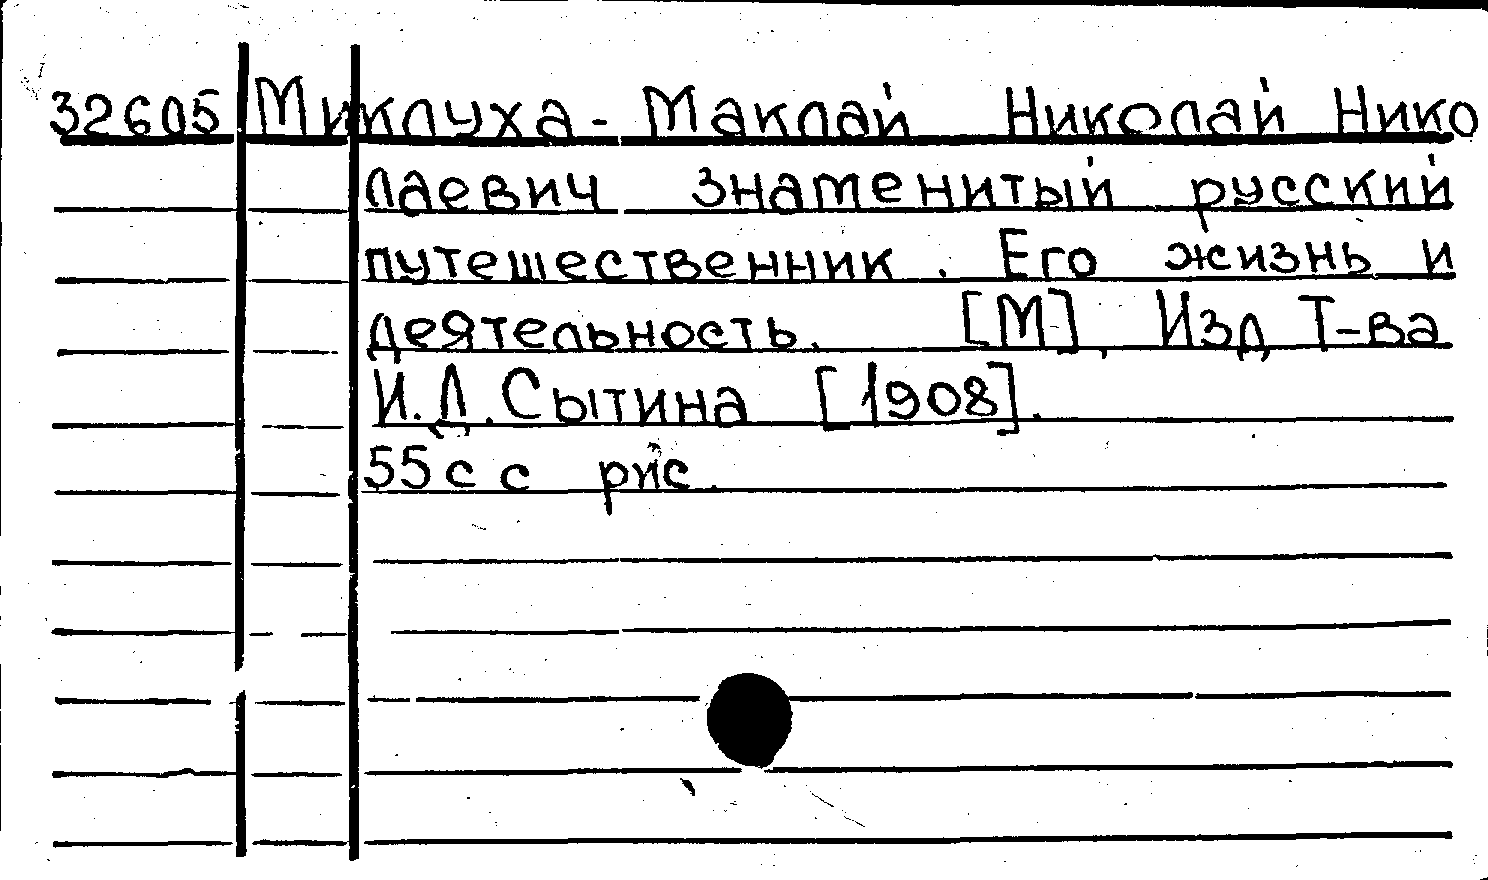 32605 Миклуха-Маклай Николай Нико
лаевич знаменитый русский
путешественник. Его жизнь и
деятельность. [М], Изд Т-ва
И.Д.Сытина [1908].
55с с рис.